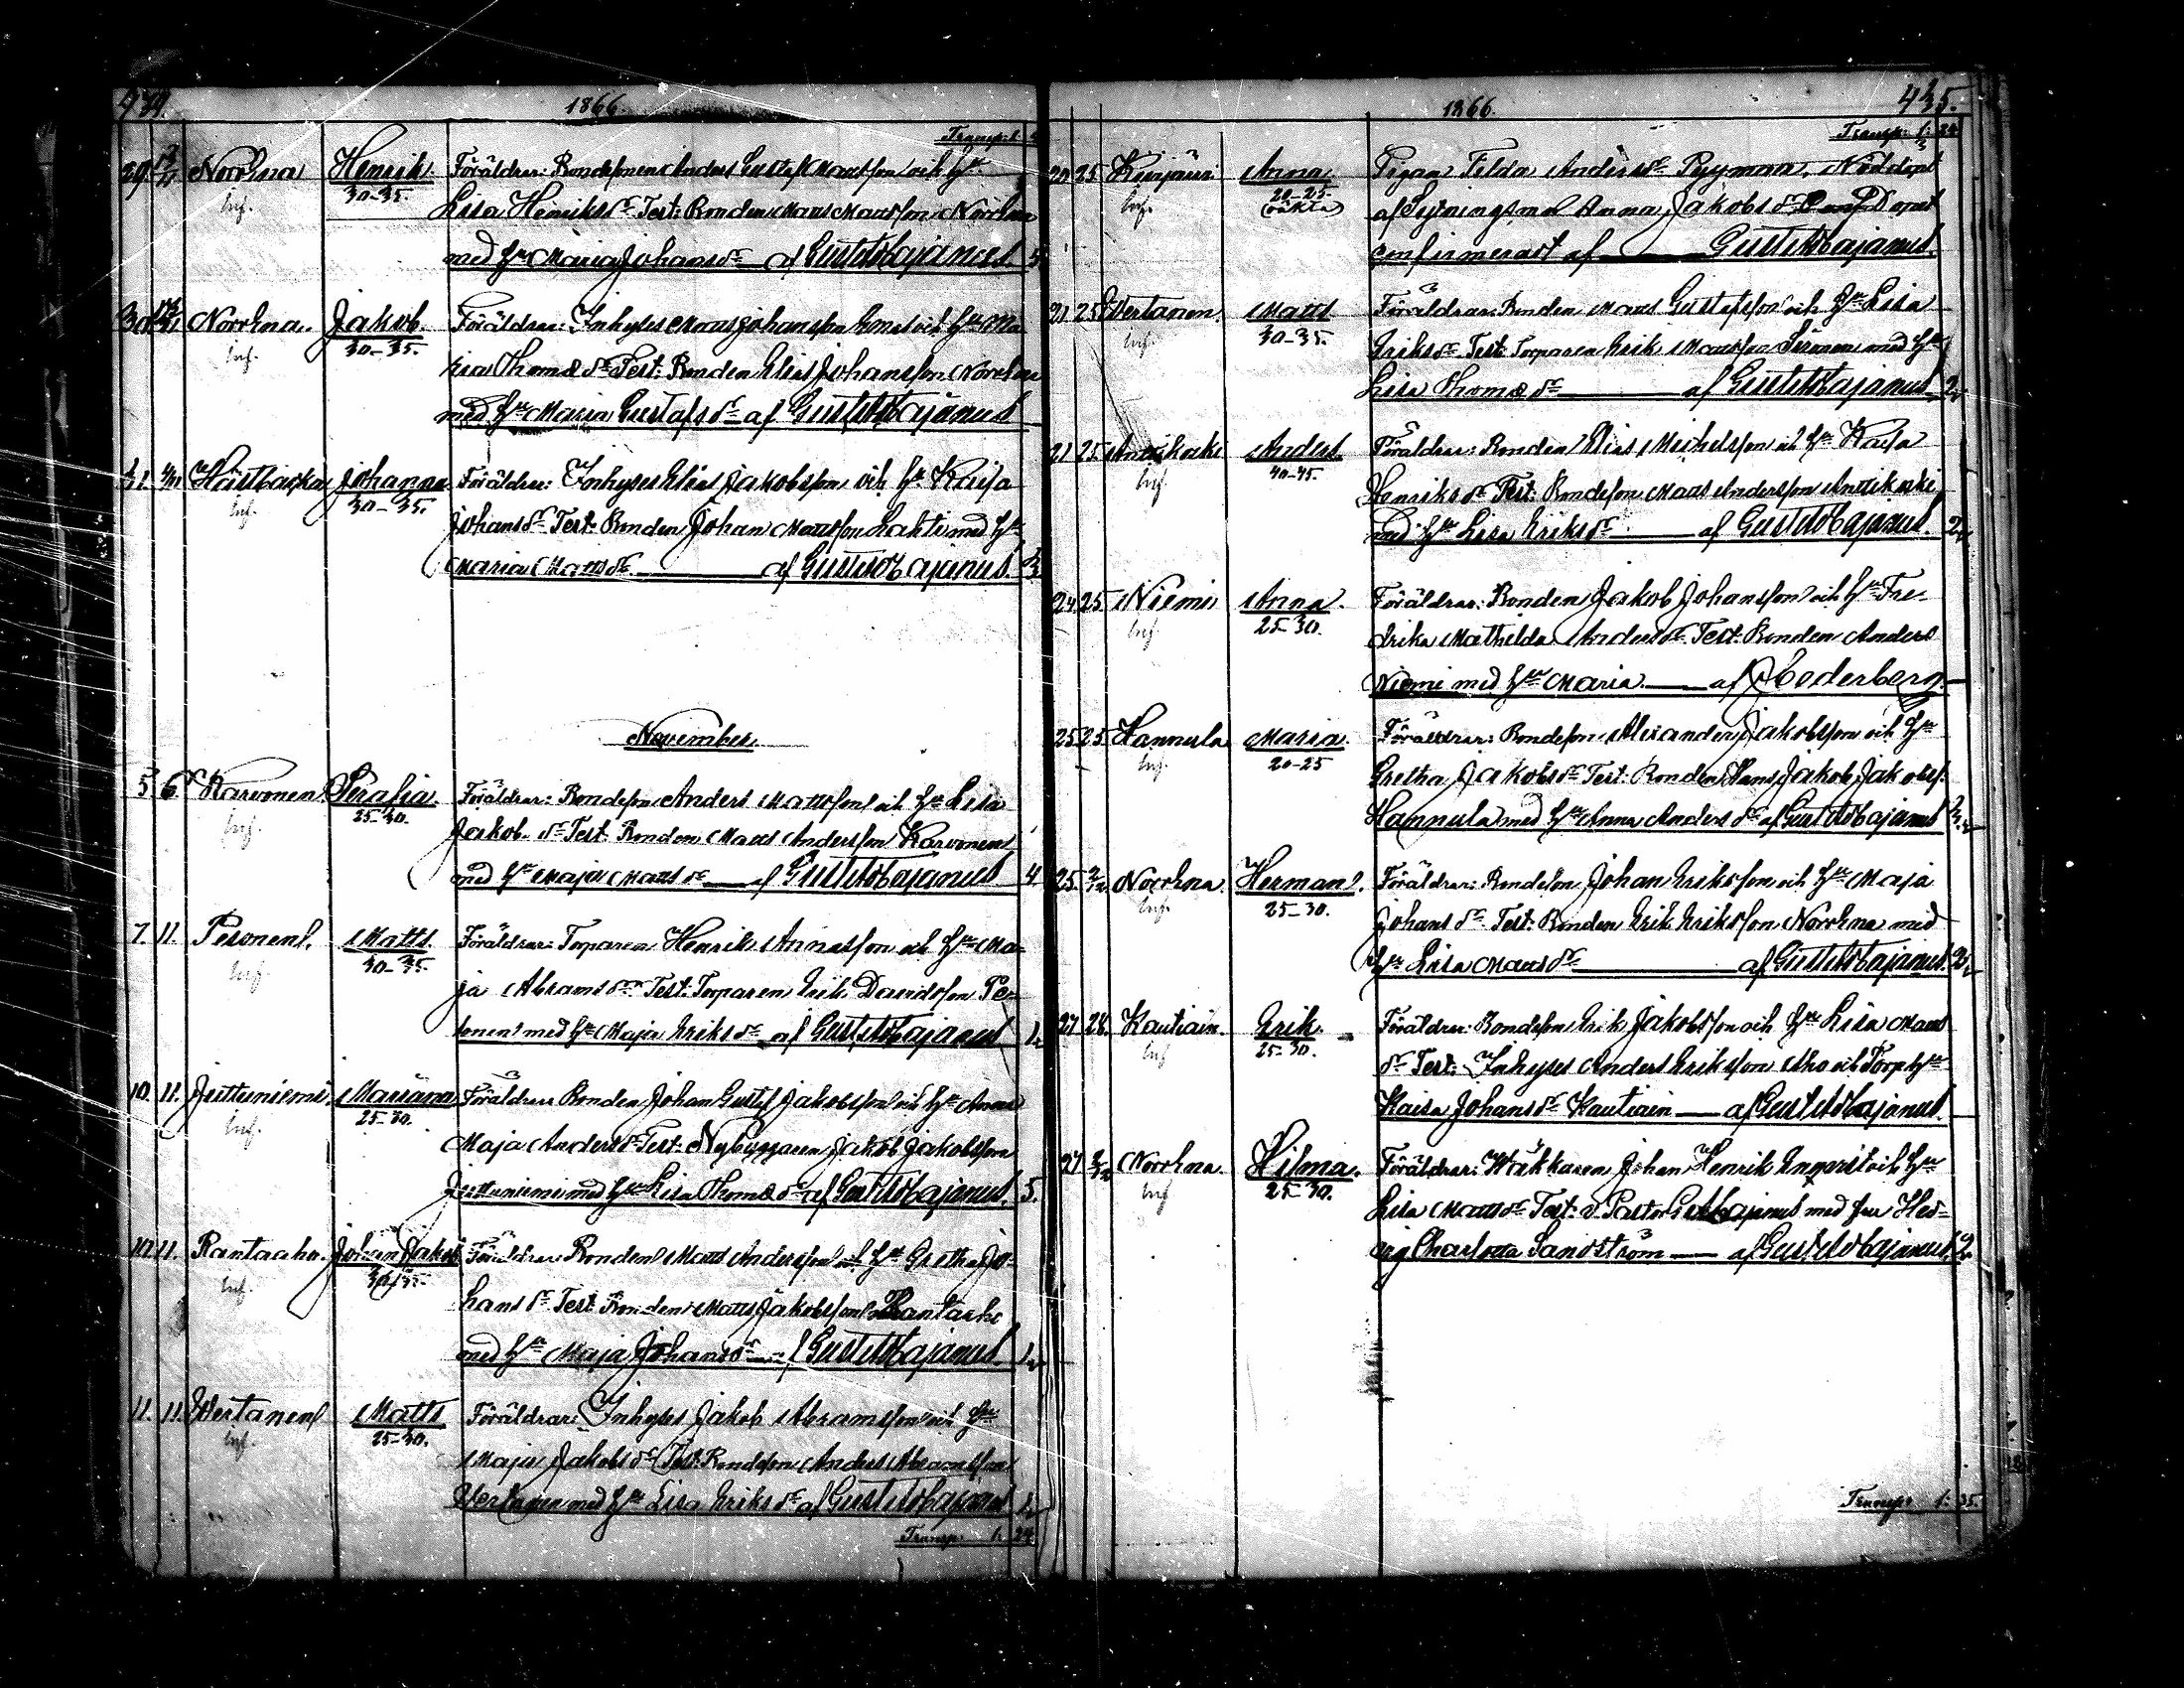 424.
1866.
Transp: 1:
29. Norrhna Henrik. Föräldrar: Bondesonen Anders Gustaf Mattsson och h:u
inf. 30-35. Lisa Henriksdr Test: Bonden Matts Mattsson Norrhna
med h:u Maria Johansdr af Gust. Cajanus
30 Norrhna. Jakob. Föräldrar: Inhyses Matts Johansson och h:u Ma
inf. 30-35. ria Thomædr Test: Bonden Elias Johansson Norrhna
med h:u Maria Gustafsdr af Gust. Cajanus
31. Hästbacka Johanna Föräldrar: Inhyses Elias Jakobsson och h:u Kaisa
inf. 30-35. Johansdr Test: Bonden Johan Mattsson Lahti med h:u
Maria Mattsdr af Gust. Cajanus.
November.
5 6 Karvonen. Serafia. Föräldrar: Bondeson Anders Mattsson och h:u Lisa
inf. 25-30. Jakobsdr Test: Bonden Matts Andersson Karvonen
med h:u Maja Mattsdr af Gust. Cajanus 4.
7. 11. Pesonen. Matts. Föräldrar: Torparen Henrik Annasson och h:u Ma-
inf. 30-35. ja Abramsdr Test: Torparen Erik Davidsson Pe-
sonen med h:u Maja Eriksdr af Gust. Cajanus 1.
10. 11. Juttuniemi. Mariana Föräldrar Bonden Johan Gustaf Jakobsson och h:u Anna
inf. 25-30. Maja Andersdr Test: Nybyggaren Jakob Jakobsson
Juttuniemi med h:u Lisa Thomædr af Gust. Cajanus. 5.
10. 11. Rantaaho. Johan Jakob Föräldrar Bonden Matts Andersson och h:u Gretha Jo-
inf. 30-35. hansdr Test: Bonden Matts Jakobsson Rantaaho
med h:u Maja Johansdr af Gust. Cajanus 1.
11. 11. Wertanen Matts Föräldrar: Inhyses Jakob Abramsson och h:u
inf. 25-30. Maja Jakobsdr Test: Bondeson Anders Abramsson
Wertanen med h:u Lisa Eriksdr af Gust. Cajanus 1.
Transp: 1: 24.
425.
1866.
Transp: 1: 24
20 25 Anna Pigan Tilda Andersdr Ryyman. Nöddöpt
inf. 20-25. (oäkta) af Sytningsmol Anna Jakobsdr
confirmeradt af Gust. Cajanus.
21 25 Wertanen. Matts Föräldrar: Bonden Matts Gustafsson och h:u Lisa
inf. 30-35. Eriksdr Test: Torparen Erik Mattsson med h:u
Lisa Thomædr af Gust. Cajanus 2.
21 25. Anttikoski Anders. Föräldrar: Bonden Elias Michelsson och h:u Kaisa
inf. 40-45. Henriksdr Test: Bondeson Matts Andersson Anttikoski
med h:u Lisa Eriksdr af Gust. Cajanus. 2.
24 25 Niemi Anna. Föräldrar: Bonden Jakob Johansson och h:u Fre-
inf. 25-30. drika Mathilda Andersdr Test: Bonden Anders
Niemi med h:u Maria. af Cederberg.
25 25 Hannula Maria. Föräldrar: Bondeson Alexander Jakobsson och h:u
inf. 20-25 Gretha Jakobsdr Test: Bonden Hans Jakob Jakobs.
Hannula med h:u Anna Andersdr af Gust. Cajanus 2.
25. 2/12 Norrhna Herman. Föräldrar: Bondeson Johan Eriksson och h:u Maja
inf. 25-30. Johansdr Test: Bonden Erik Eriksson Norrhna med
h:u Lisa Mattsdr af Gust. Cajanus. 2.
27 28. Kautiain. Erik. Föräldrar: Bondeson Erik Jakobsson och h:u Lisa Matts
inf 25-30. dr Test: Inhyses Anders Eriksson Aho och Torp. h:u
Kaisa Johansdr Kautiain af Gust. Cajanus.
27 2/12 Norrhna. Hilma. Föräldrar: Johan Henrik och h:u
inf 25-30. Lisa Mattsdr Test: v. Pastor G. Cajanus med fru Hed-
vig Charlotta Sandström af Gust. Cajanus. 2.
Transp: 1: 35.